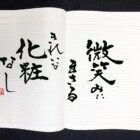 微笑みに
まさる
化粧
なし
きれいな